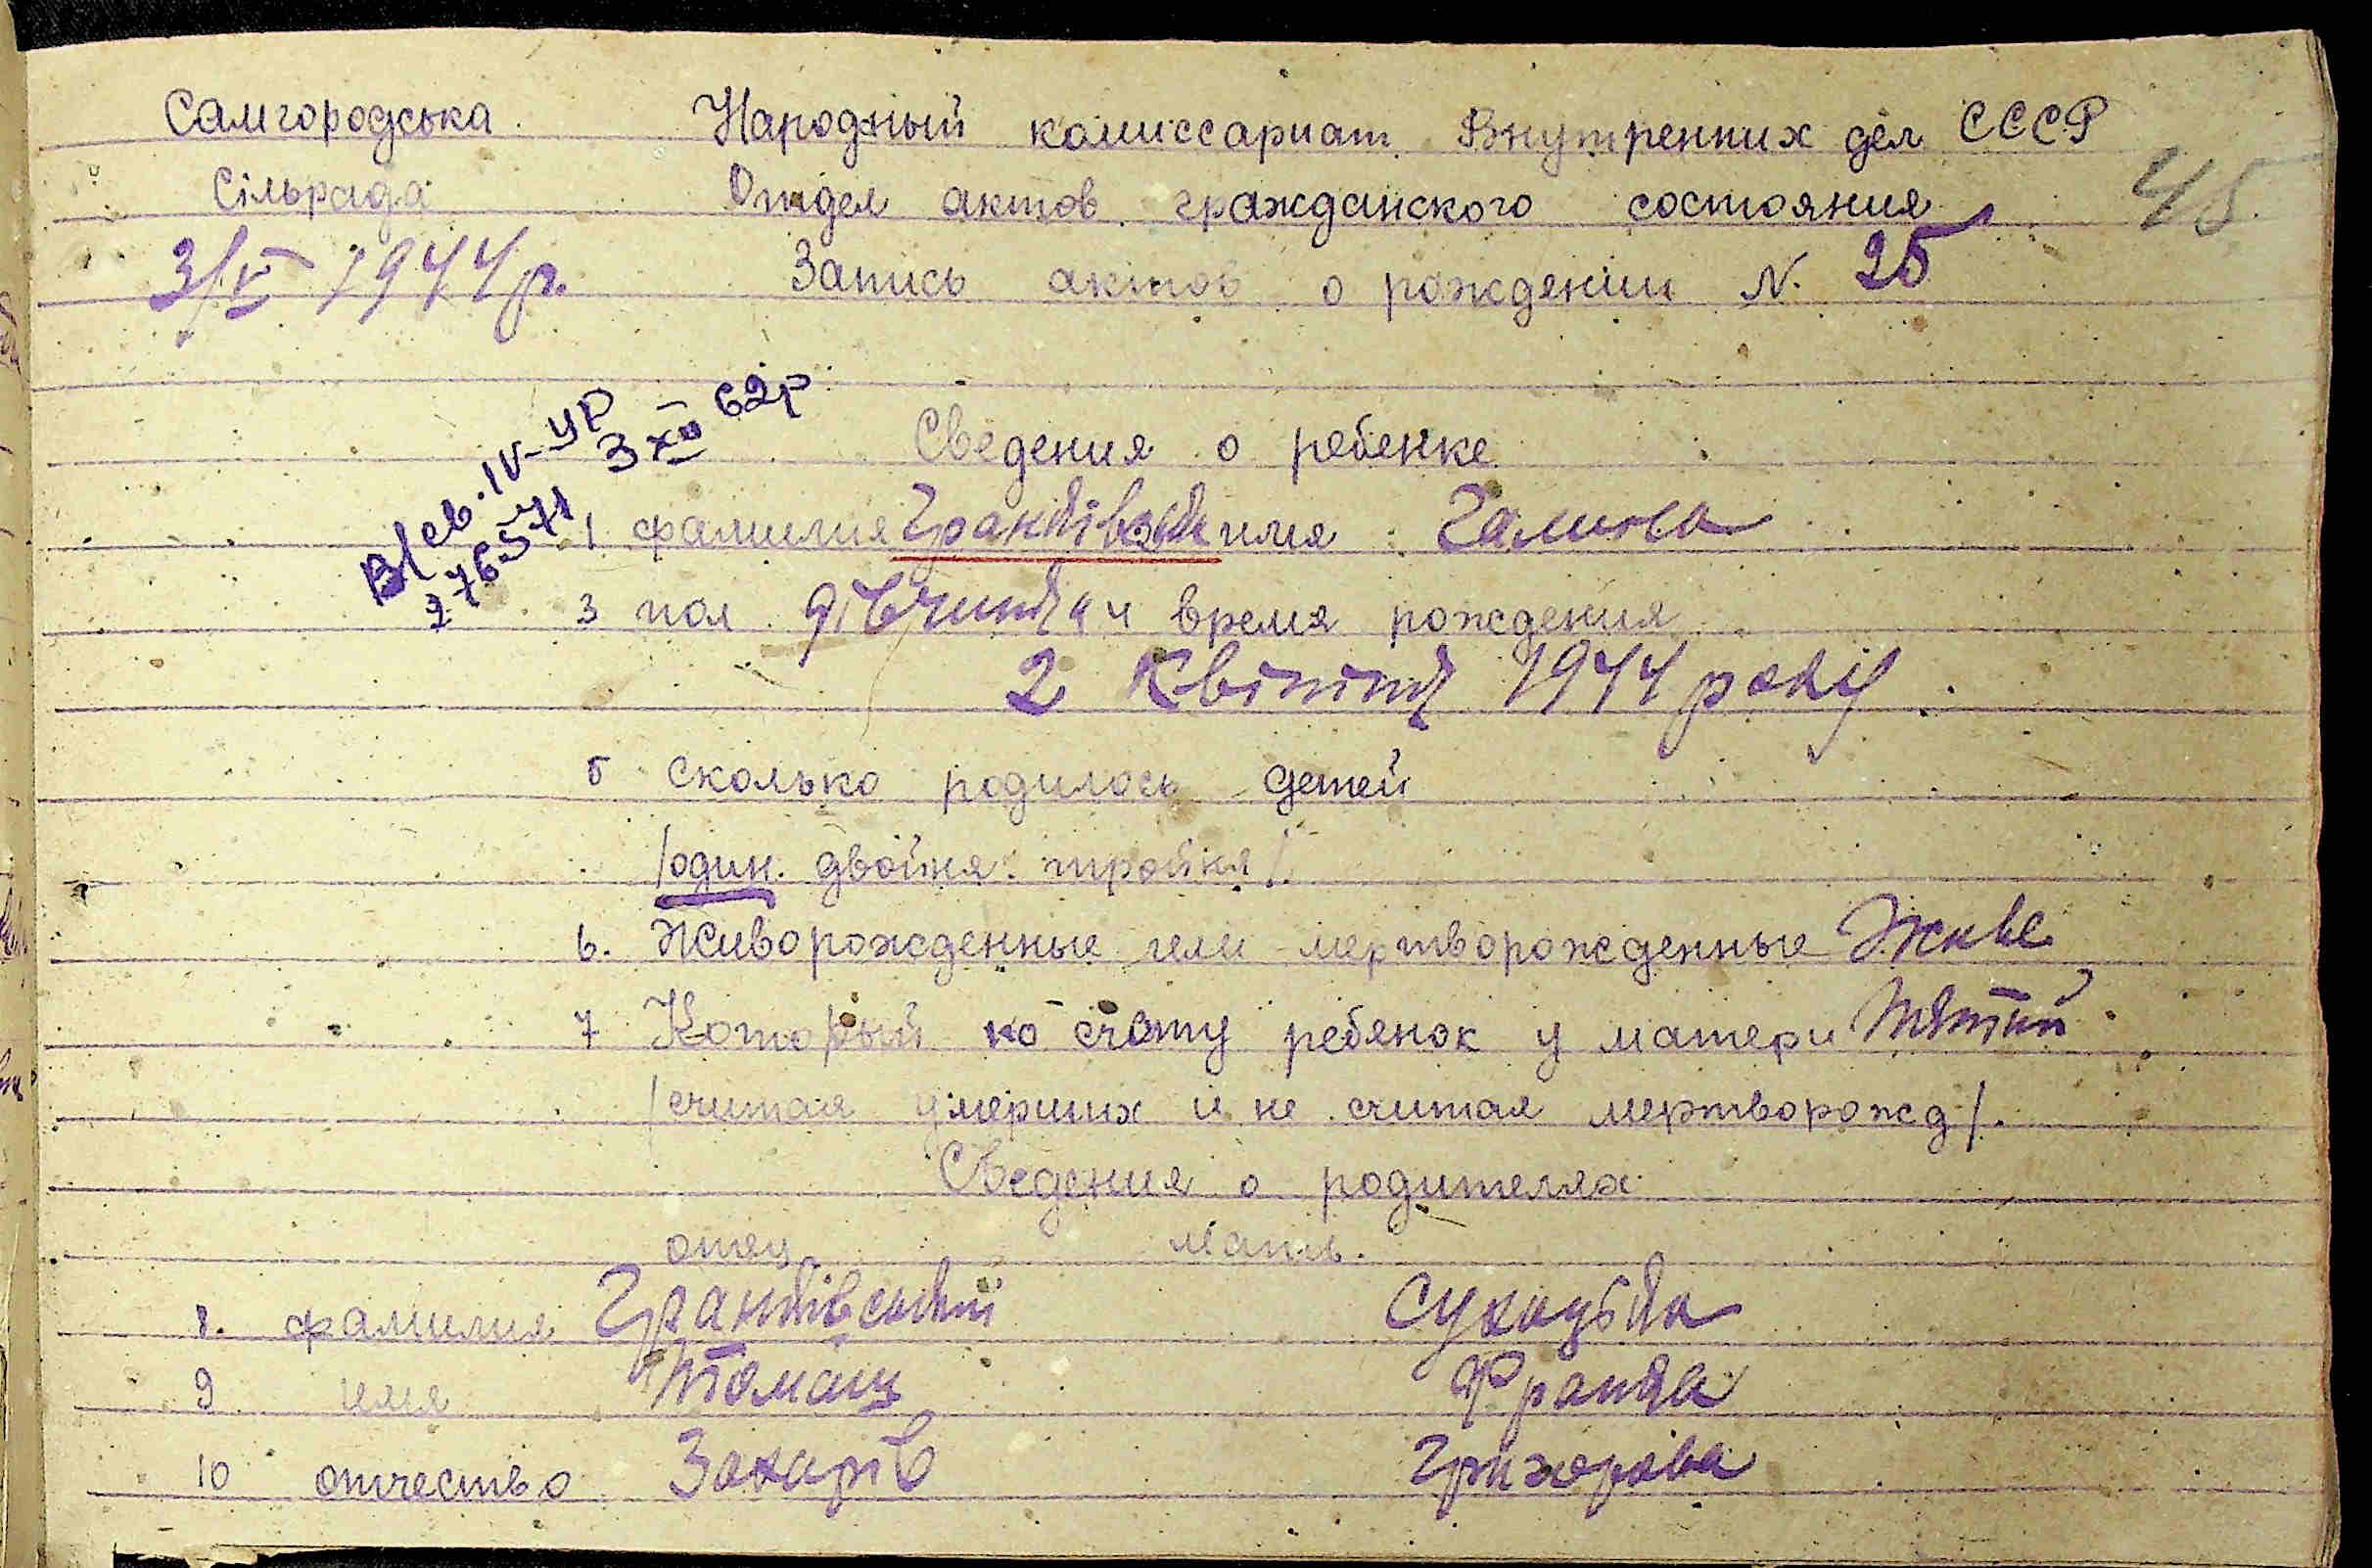 Самгородська Народный комиссариат Внутренних дел СССР
Сільрада Отдел актов гражданского состояния 45
3/V 1944 р. Запись актов о рождении N. 25
В/св. IV-УР
276571
3 XII 62р
Сведения о ребенке
1 фамилия имя Галина
3 пол дівчинка 4 время рождения
2 Квітня 1944 року
5 сколько родилось детей
/один. двойня. тройня/
6. Живорожденные или мертворожденные Живе
7 Который по счёту ребенок у матери
/считая умерших и не считая мертворожд/.
Сведения о родителях
отец мать.
8. фамилия
9 имя Томаш Франка
10 отчество Захарів Григорова